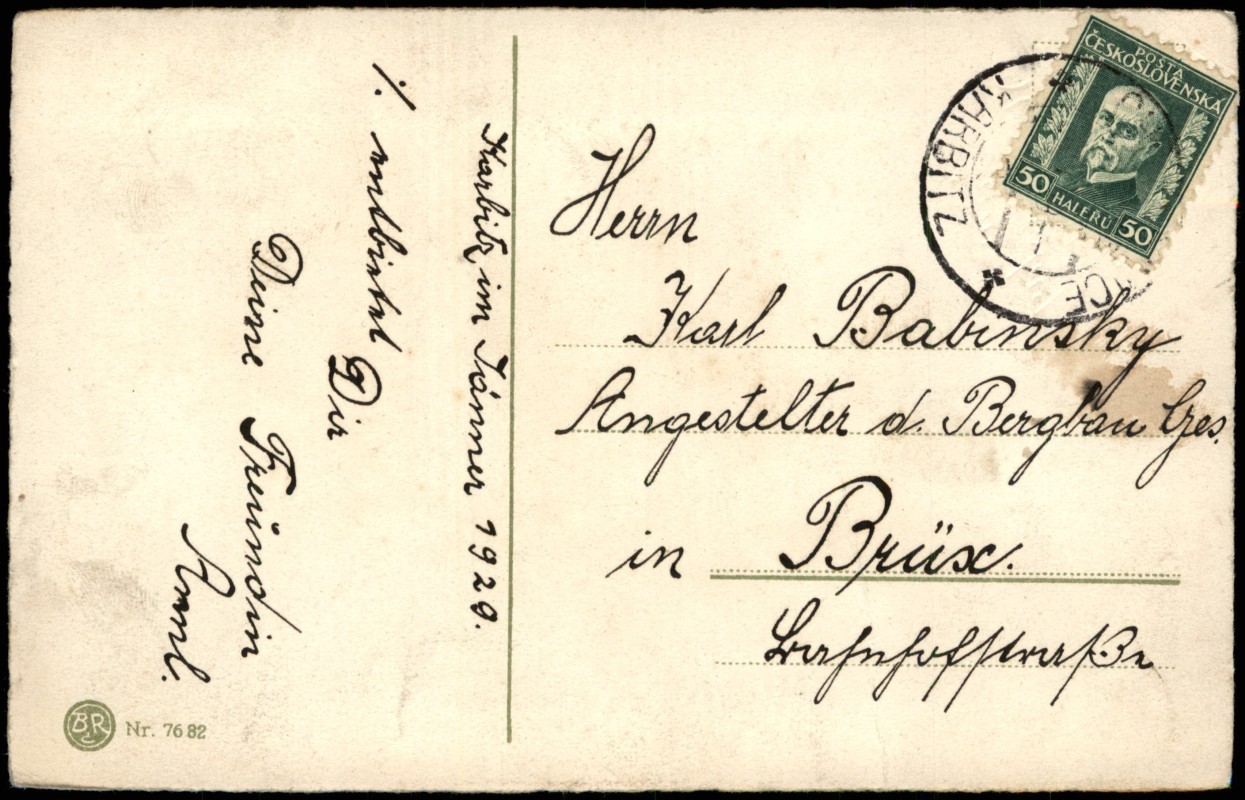 Karbitz, im Jänner 1929.
./. entbietet
Dir
Deine Freundin
Herrn
Karl Babinsky
Angestelter d. Bergbau Ges.
in Brüx.
Bahnhofstraße
POŠTA
ČESKOSLOVENSKÁ
50 HALÉŘŮ 50
KARBITZ
BR
Nr. 7682